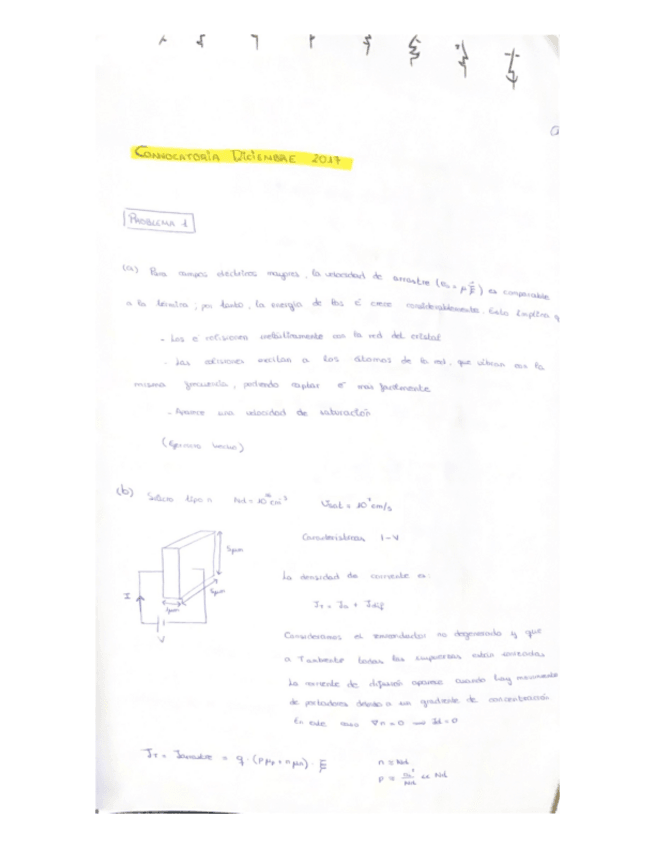 CONVOCATORIA DICIEMBRE 2017
PROBLEMA 1
(a) Para campos eléctricos mayores, la velocidad de arrastre es comparable
a la térmica; por tanto, la energía de los e⁻ crece considerablemente. Esto implica q
- Los e⁻ colisionen con la red del cristal
- Las colisiones excitan a los átomos de la red, que vibran con la
misma frecuencia, pudiendo captar e⁻ más fácilmente
- Aparece una velocidad de saturación
(Ejercicio hecho)
(b) Silicio tipo n Nd = 10¹⁶ cm⁻³ Vsat = 10⁷ cm/s
Características I-V
5µm
5µm
1µm
I
V
La densidad de corriente es:
J_T = J_a + J_dif
Consideramos el semiconductor no degenerado y que
a Tambiente todas las impurezas están ionizadas
La corriente de difusión aparece cuando hay movimiento
de portadores debido a un gradiente de concentración
En este caso ∇n = 0 ⟹ Jd = 0
J_T = Jarrastre = q · (pμp + nμn) · E
n ≈ Nd
p ≈ ni²/Nd << Nd